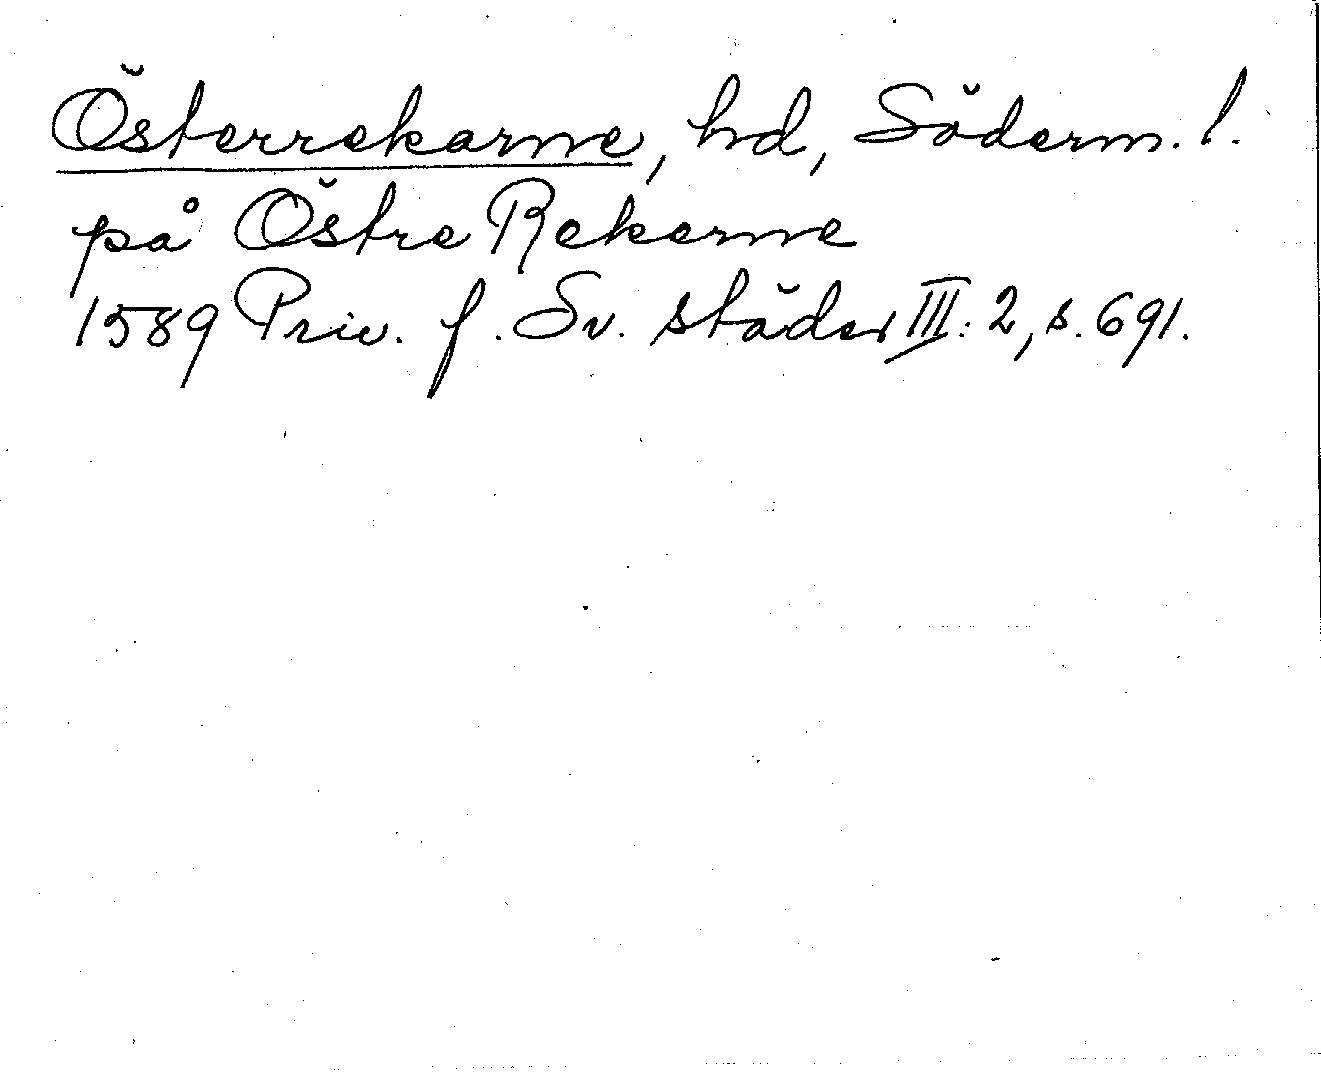 Österrekarne, hd, Söderm. l.
på Östre Rekerne
1589 Priv. f. Sv. städer III: 2, s. 691.